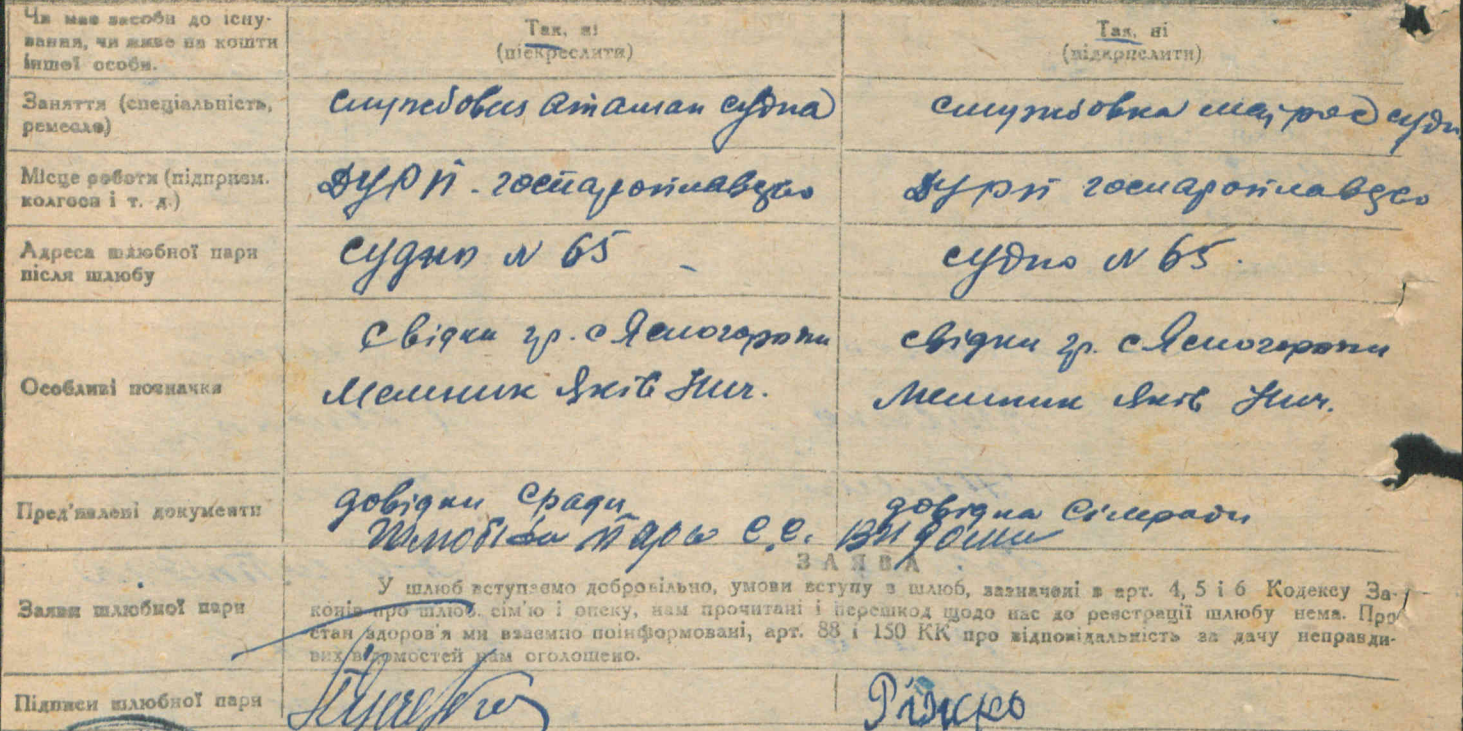 Чи має засоби до існу-
вання, чи живе на кошти
іншої особи.
Так, ні
(підкреслити)
Так, ні
(підкреслити)
Заняття (спеціальність,
ремесло)
службовий судна
службовка матрос судн
Місце роботи (підприєм.
колгосп і т. д.)
ДУРП. госпаропливдво
ДУРП госпаропливдво
Адреса шлюбної пари
після шлюбу
судно N 65
судно N 65.
Особливі позначки
Свідки гр. с Ясногородки
Мельник Яків Нич.
свідки гр. с Ясногородки
Мельник Яків Нич.
Пред'явлені документи
довідки сради
довідка Сільради
пара
ЗАЯВА
Заяви шлюбної пари
У шлюб вступаємо добровільно, умови вступу в шлюб, зазначені в арт. 4, 5 і 6 Кодексу За-
конів про шлюб, сім'ю і опеку, нам прочитані і перешкод щодо нас до реєстрації шлюбу нема. Про
стан здоров'я ми взаємно поінформовані, арт. 88 і 150 КК про відповідальність за дачу неправди-
вих відомостей нам оголошено.
Підписи шлюбної пари